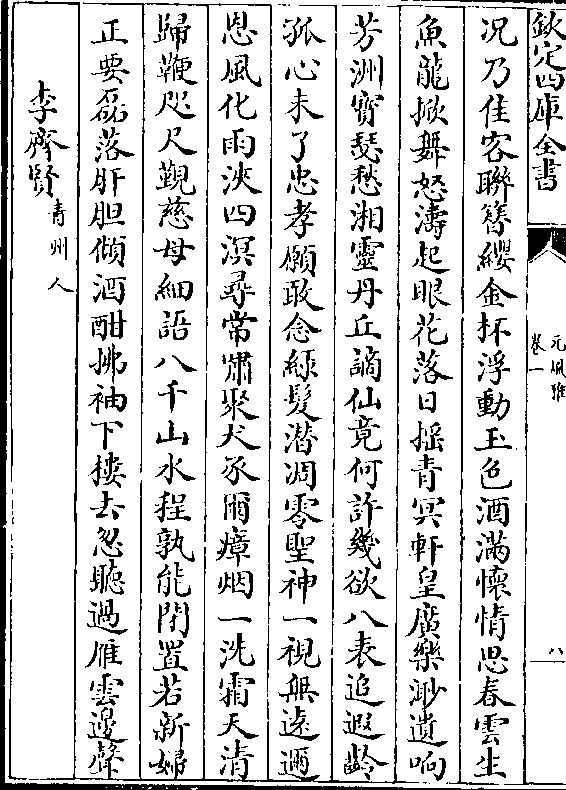 欽定四庫全書
元風雅
卷一
八
况乃佳客聯簪纓金杯浮動玉色酒滿懐情思春雲生
魚龍掀舞怒濤起眼花落日揺青冥軒皇廣樂渺遺响
芳洲寳瑟愁湘靈丹丘謫仙竟何許幾欲八表追遐齡
孤心未了忠孝願敢念緑髮潜凋零聖神一視無遠邇
恩風化雨浹四溟尋常嘯聚犬豕爾瘴烟一洗霜天清
歸鞭咫尺覲慈母細語八千山水程孰能閉置若新婦
正要磊落肝胆傾酒酣拂袖下樓去忽聽過雁雲邊聲
李齊賢青州人